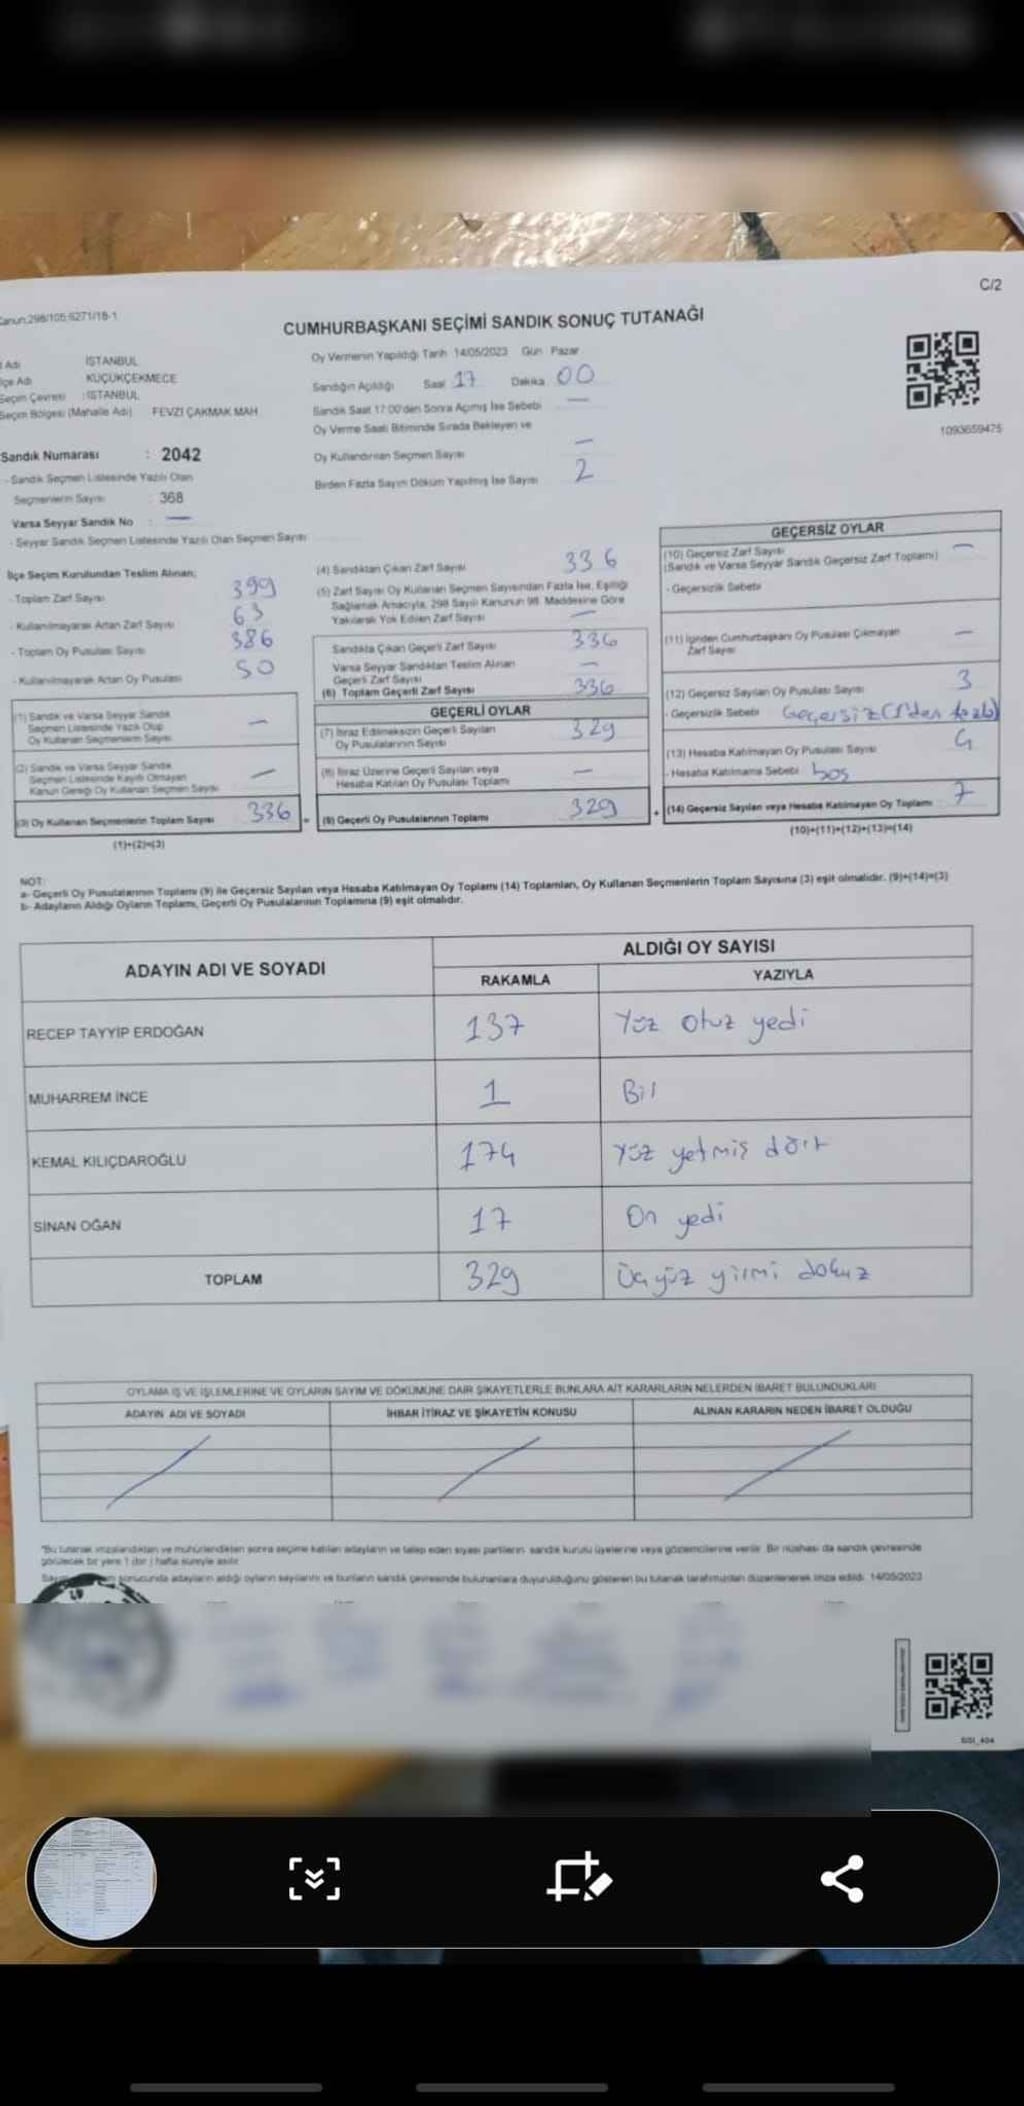 C/2
Kanun:298/105;6271/18-1
CUMHURBAŞKANI SEÇİMİ SANDIK SONUÇ TUTANAĞI
Adı İSTANBUL
lçe Adı KÜÇÜKÇEKMECE
Seçim Çevresi : İSTANBUL
Seçim Bölgesi (Mahalle Adı) FEVZİ ÇAKMAK MAH
Oy Vermenin Yapıldığı Tarih 14/05/2023 Gün Pazar
Sandığın Açıldığı Saat 17 Dakika 00
Sandık Saat 17:00'den Sonra Açılmış İse Sebebi —
Oy Verme Saati Bitiminde Sırada Bekleyen ve
Oy Kullandırılan Seçmen Sayısı —
Birden Fazla Sayım Döküm Yapılmış İse Sayısı 2
1093659475
Sandık Numarası : 2042
- Sandık Seçmen Listesinde Yazılı Olan
Seçmenlerin Sayısı : 368
Varsa Seyyar Sandık No : —
- Seyyar Sandık Seçmen Listesinde Yazılı Olan Seçmen Sayısı
İlçe Seçim Kurulundan Teslim Alınan;
- Toplam Zarf Sayısı 399
- Kullanılmayarak Artan Zarf Sayısı 63
- Toplam Oy Pusulası Sayısı 386
- Kullanılmayarak Artan Oy Pusulası 50
(1) Sandık ve Varsa Seyyar Sandık
Seçmen Listesinde Yazılı Olup
Oy Kullanan Seçmenlerin Sayısı —
(2) Sandık ve Varsa Seyyar Sandık
Seçmen Listesinde Kayıtlı Olmayan
Kanun Gereği Oy Kullanan Seçmen Sayısı —
(3) Oy Kullanan Seçmenlerin Toplam Sayısı 336
(1)+(2)=(3)
(4) Sandıktan Çıkan Zarf Sayısı 336
(5) Zarf Sayısı Oy Kullanan Seçmen Sayısından Fazla İse, Eşitliği
Sağlamak Amacıyla, 298 Sayılı Kanunun 98. Maddesine Göre
Yakılarak Yok Edilen Zarf Sayısı —
Sandıkta Çıkan Geçerli Zarf Sayısı 336
Varsa Seyyar Sandıktan Teslim Alınan
Geçerli Zarf Sayısı —
(6) Toplam Geçerli Zarf Sayısı 336
GEÇERLİ OYLAR
(7) İtiraz Edilmeksizin Geçerli Sayılan
Oy Pusulalarının Sayısı 329
(8) İtiraz Üzerine Geçerli Sayılan veya
Hesaba Katılan Oy Pusulası Toplamı —
(9) Geçerli Oy Pusulalarının Toplamı 329
GEÇERSİZ OYLAR
(10) Geçersiz Zarf Sayısı
(Sandık ve Varsa Seyyar Sandık Geçersiz Zarf Toplamı) —
- Geçersizlik Sebebi
(11) İçinden Cumhurbaşkanı Oy Pusulası Çıkmayan
Zarf Sayısı —
(12) Geçersiz Sayılan Oy Pusulası Sayısı 3
- Geçersizlik Sebebi Geçersiz (1'den fazla)
(13) Hesaba Katılmayan Oy Pusulası Sayısı 4
- Hesaba Katılmama Sebebi boş
(14) Geçersiz Sayılan veya Hesaba Katılmayan Oy Toplamı 7
(10)+(11)+(12)+(13)=(14)
NOT:
a- Geçerli Oy Pusulalarının Toplamı (9) ile Geçersiz Sayılan veya Hesaba Katılmayan Oy Toplamı (14) Toplamları, Oy Kullanan Seçmenlerin Toplam Sayısına (3) eşit olmalıdır. (9)+(14)=(3)
b- Adayların Aldığı Oyların Toplamı, Geçerli Oy Pusulalarının Toplamına (9) eşit olmalıdır.
ADAYIN ADI VE SOYADI ALDIĞI OY SAYISI
RAKAMLA YAZIYLA
RECEP TAYYİP ERDOĞAN 137 Yüz otuz yedi
MUHARREM İNCE 1 Bir
KEMAL KILIÇDAROĞLU 174 Yüz yetmiş dört
SİNAN OĞAN 17 On yedi
TOPLAM 329 Üçyüz yirmi dokuz
OYLAMA İŞ VE İŞLEMLERİNE VE OYLARIN SAYIM VE DÖKÜMÜNE DAİR ŞİKAYETLERLE BUNLARA AİT KARARLARIN NELERDEN İBARET BULUNDUKLARI
ADAYIN ADI VE SOYADI İHBAR İTİRAZ VE ŞİKAYETİN KONUSU ALINAN KARARIN NEDEN İBARET OLDUĞU
*Bu tutanak imzalandıktan ve mühürlendikten sonra seçime katılan adayların ve talep eden siyasi partilerin sandık kurulu üyelerine veya gözlemcilerine verilir. Bir nüshası da sandık çevresinde
görülecek bir yere 1 (bir) hafta süreyle asılır.
sonucunda adayların aldığı oyların sayılarını ve bunların sandık çevresinde bulunanlara duyurulduğunu gösteren bu tutanak tarafımızdan düzenlenerek imza edildi. 14/05/2023